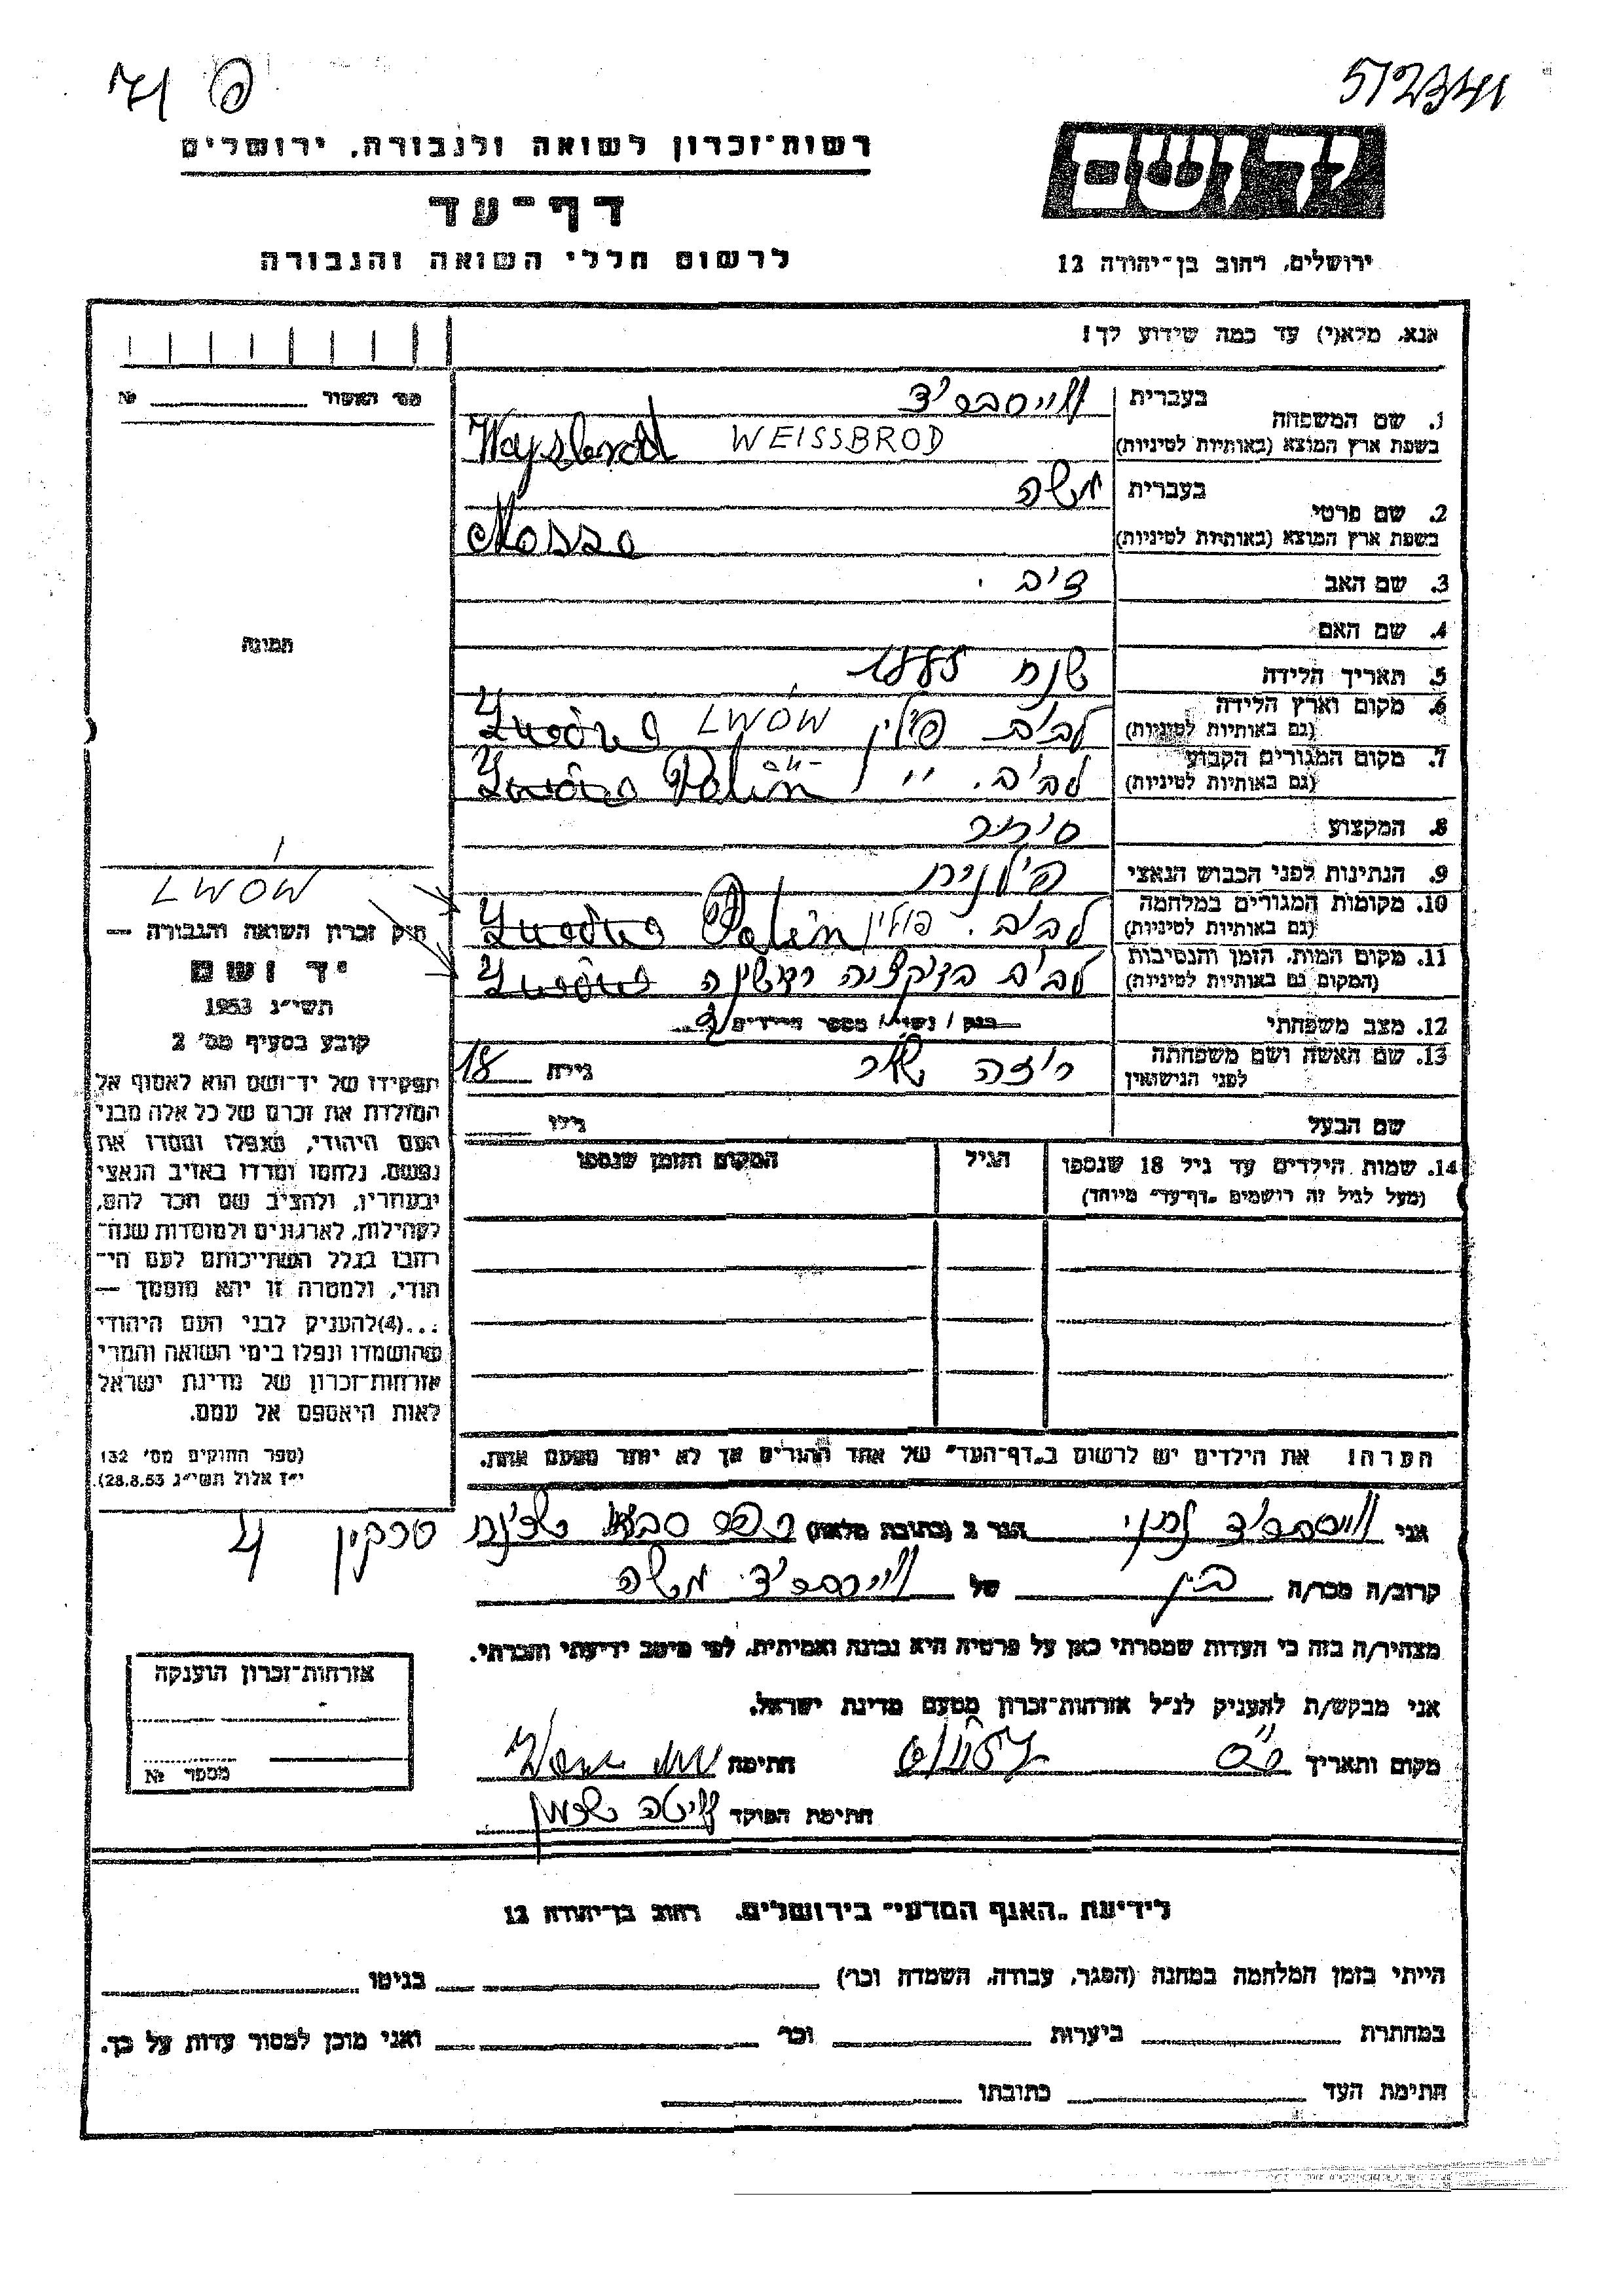 512341
פ 71
יד ושם
רשות־זכרון לשואה ולגבורה, ירושלים
דף־עד
ירושלים, רחוב בן־יהודה 12
לרשום חללי השואה והגבורה
אנא, מלא(י) עד כמה שידוע לך!
מס׳ האשור № 
1. שם המשפחה
בעברית
בשפת ארץ המוצא (באותיות לטיניות) WEISSBROD Waysbrod
2. שם פרטי
בעברית משה
בשפת ארץ המוצא (באותיות לטיניות)
3. שם האב
4. שם האם
תמונה
5. תאריך הלידה שנת 1885
6. מקום וארץ הלידה
(גם באותיות לטיניות) לבוב פולין LWÓW
7. מקום המגורים הקבוע
(גם באותיות לטיניות) לבוב
8. המקצוע סוחר
9. הנתינות לפני הכבוש הנאצי פולנית
10. מקומות המגורים במלחמה
(גם באותיות לטיניות) לבוב. פולין
11. מקום המות, הזמן והנסיבות
(המקום גם באותיות לטיניות) לבוב באקציה ראשונה
12. מצב משפחתי רווק / נשוי / מספר הילדים
13. שם האשה ושם משפחתה
לפני הנישואין רוזה גילה 18
שם הבעל גילו
14. שמות הילדים עד גיל 18 שנספו
(מעל לגיל זה רושמים „דף־עד״ מיוחד)
הגיל
המקום והזמן שנספו
LWÓW
חוק זכרון השואה והגבורה —
יד ושם
תשי״ג 1953
קובע בסעיף מס׳ 2
תפקידו של יד־ושם הוא לאסוף אל
המולדת את זכרם של כל אלה מבני
העם היהודי, שנפלו ומסרו את
נפשם, נלחמו ומרדו באויב הנאצי
ובעוזריו, ולהציב שם וזכר להם,
לקהילות, לארגונים ולמוסדות שנח־
רבו בגלל השתייכותם לעם הי־
הודי, ולמטרה זו יהא מוסמך —
...(4)להעניק לבני העם היהודי
שהושמדו ונפלו בימי השואה והמרי
אזרחות־זכרון של מדינת ישראל
לאות היאספם אל עמם.
(ספר החוקים מס׳ 132
י״ז אלול תשי״ג 28.8.53).
הערה! את הילדים יש לרשום ב„דף־העד״ של אחד ההורים אך לא יותר מפעם אחת.
אני הגר ב (כתובת מלאה)
קרוב/ה מכר/ה בן של משה
מצהיר/ה בזה כי העדות שמסרתי כאן על פרטיה היא נכונה ואמיתית, לפי מיטב ידיעתי והכרתי.
אני מבקש/ת להעניק לנ״ל אזרחות־זכרון מטעם מדינת ישראל.
מקום ותאריך חתימה
חתימת הפוקד
אזרחות־זכרון הוענקה
מספר №
לידיעת „האגף המדעי״ בירושלים. רחוב בן־יהודה 12
הייתי בזמן המלחמה במחנה (הסגר, עבודה, השמדה וכר׳) בגיטו
במחתרת ביערות וכר׳ ואני מוכן למסור עדות על כך.
חתימת העד כתובתו